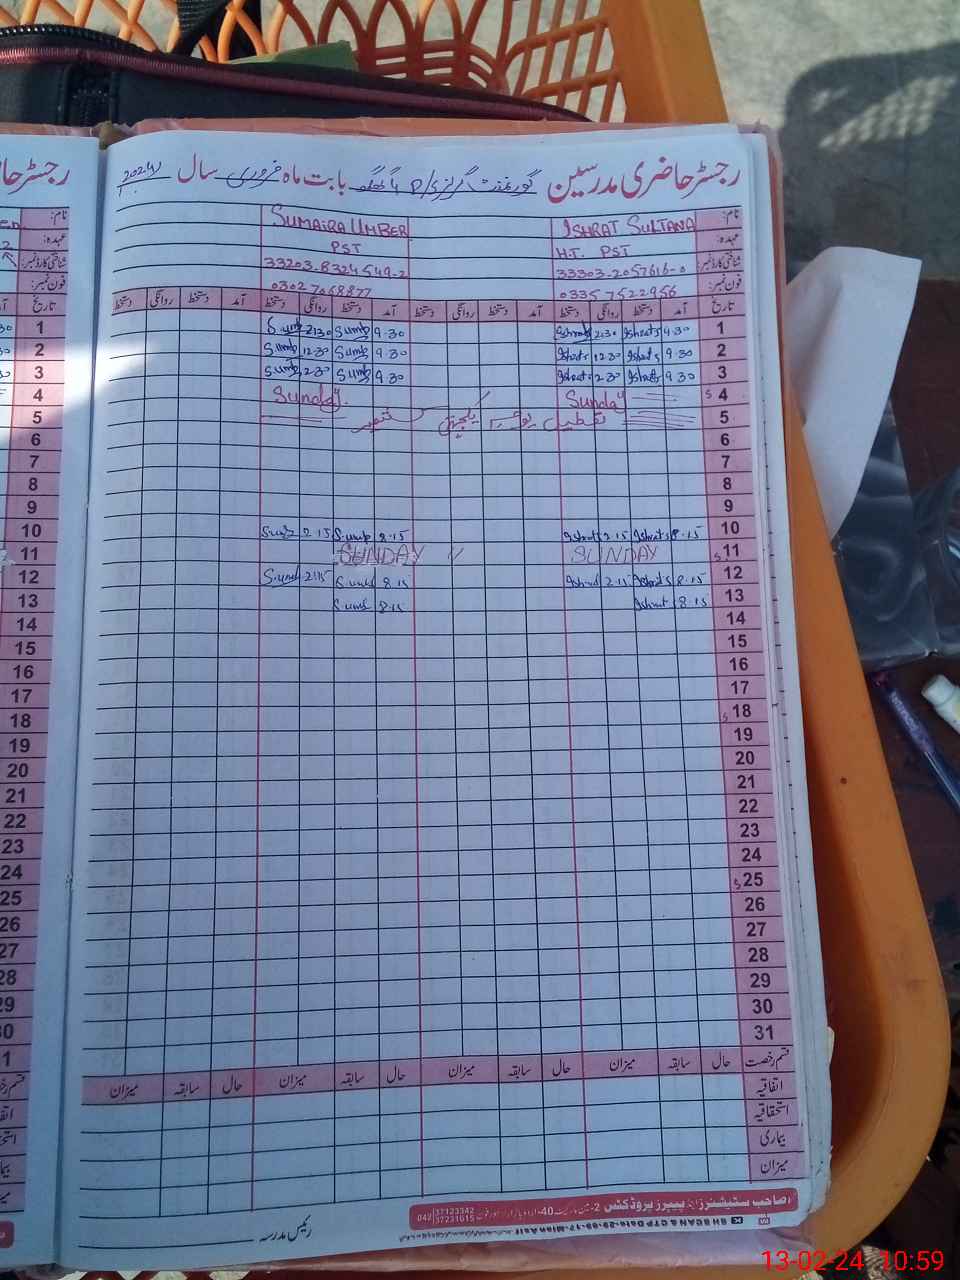 رجسٹر حاضری مدرسین گورنمنٹ گرلز P/S بابت ماہ فروری سال 2024
نام: ISHRAT SULTANA SUMAIRA UMBER
عہدہ: H.T. PST PST
شناختی کارڈ نمبر: 33303-2057616-0 33203-8324549-2
فون نمبر: 03357522956 03027068877
تاریخ آمد دستخط روانگی دستخط آمد دستخط روانگی دستخط آمد دستخط روانگی دستخط آمد دستخط روانگی دستخط
1 9.30 Ishrat s 2.30 Ishrat s 9.30 S.umb 2.30 S.umb
2 9.30 Ishrat s 12.30 Ishrat s 9.30 S.umb 12.30 S.umb
3 9.30 Ishrat s 2.30 Ishrat s 9.30 S.umb 2.30 S.umb
s 4 Sunday Sunday
5 تعطیل یوم یکجہتی کشمیر
6
7
8
9
10 8.15 Ishrat s 2.15 Ishrat s 8.15 S.umb 2.15 S.umb
s 11 SUNDAY SUNDAY
12 8.15 Ishrat s 2.15 Ishrat 8.15 S.umb 2.15 S.umb
13 8.15 Ishrat s 8.15 S.umb
14
15
16
17
s 18
19
20
21
22
23
24
s 25
26
27
28
29
30
31
قسم رخصت حال سابقہ میزان حال سابقہ میزان حال سابقہ میزان حال سابقہ میزان
اتفاقیہ
استحقاقیہ
بیماری
میزان
صاحب سٹیشنرز اینڈ پیپرز پروڈکٹس
042 37123342 37231015
رئیس مدرسہ
رجسٹر حا
13-02-24 10:59